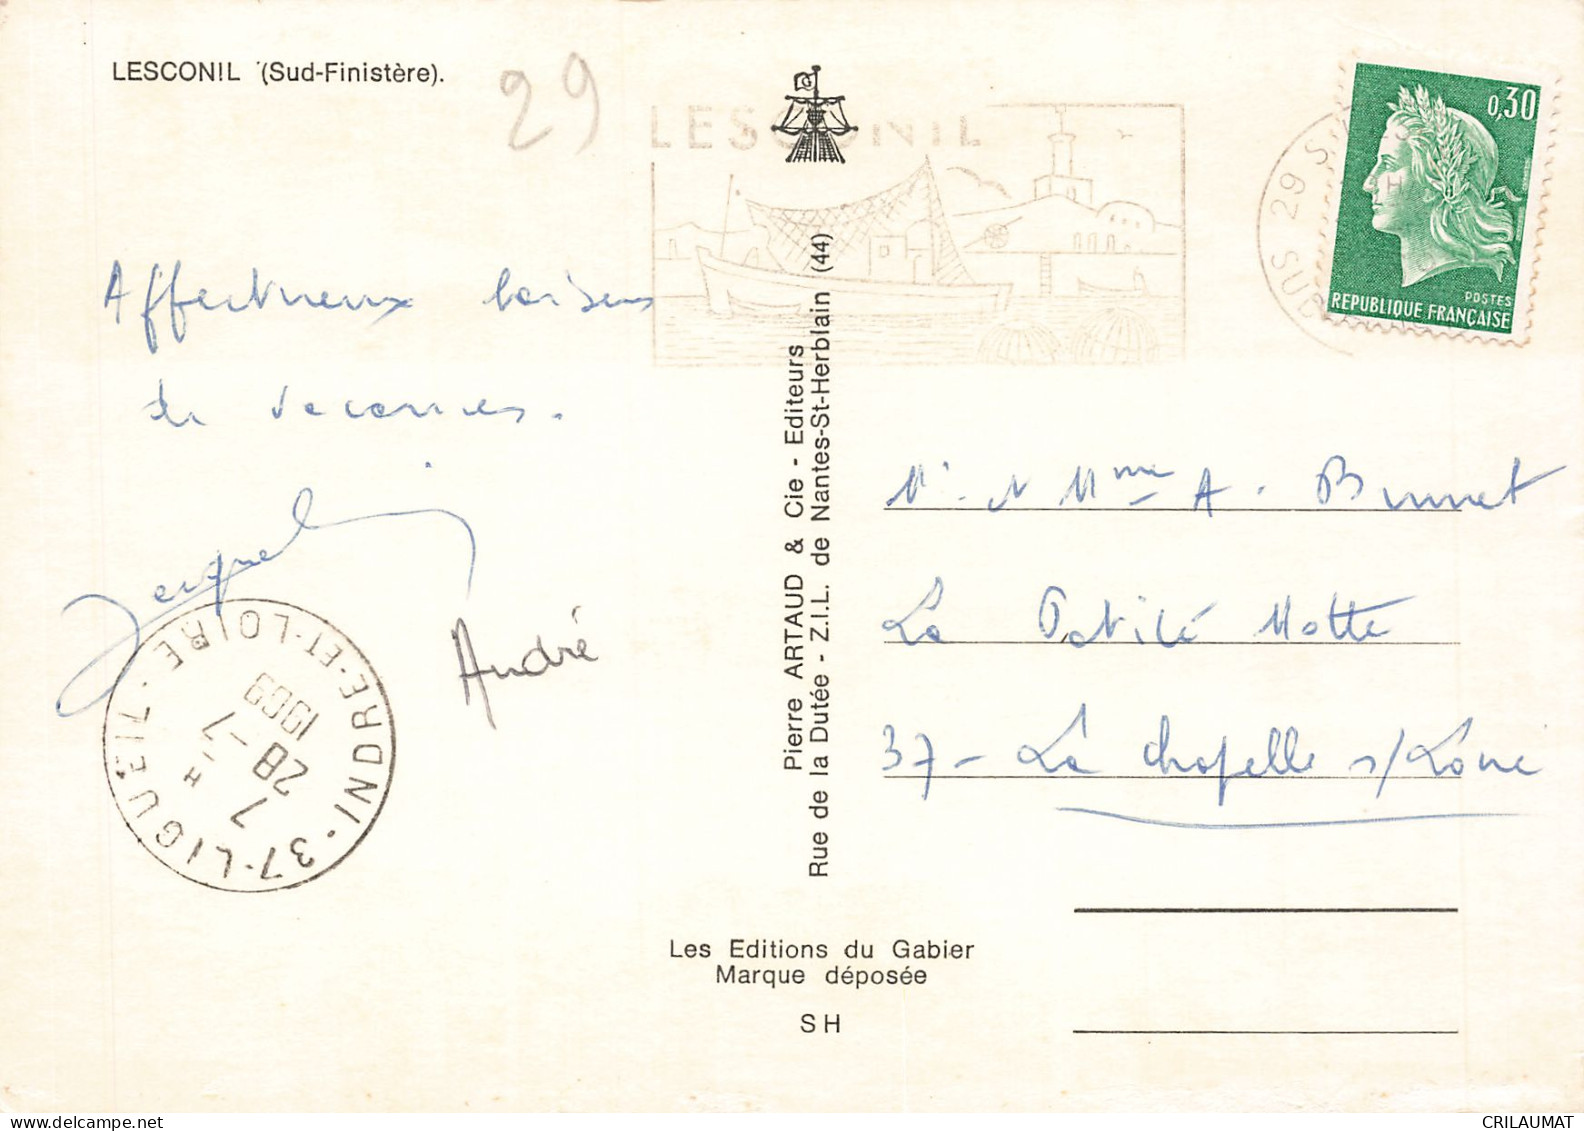 LESCONIL (Sud-Finistère).
29
LESCONIL
0,30
POSTES
REPUBLIQUE FRANÇAISE
29 S
SUR
Affectueux baisers
de vacances.
Jacqueline
André
37-LIGUEIL
INDRE-ET-LOIRE
7 H
28-7
1969
Pierre ARTAUD & Cie - Editeurs
Rue de la Dutée - Z.I.L. de Nantes-St-Herblain (44)
Mr et Mme A. Brunet
La Petite Motte
37 - La Chapelle s/Loire
Les Editions du Gabier
Marque déposée
SH
CRILAUMAT